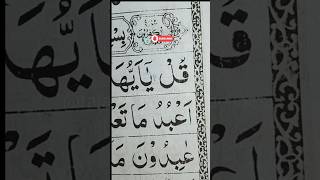 بِسْ
قُلْ يٰۤاَيُّهَا
اَعْبُدُ مَا تَعْ
عٰبِدُوْنَ مَ